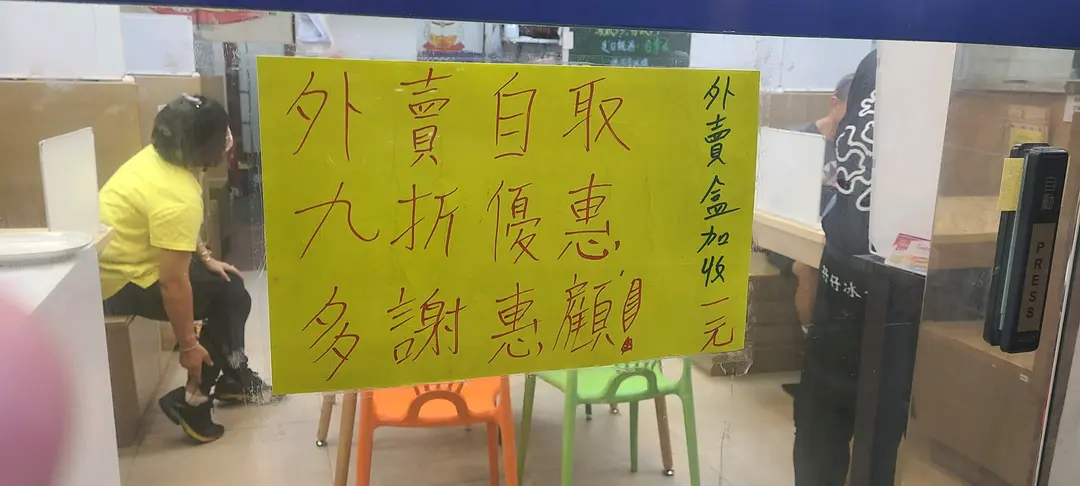 外賣自取
九折優惠
多謝惠顧!
外賣盒加收一元
自動
PRESS